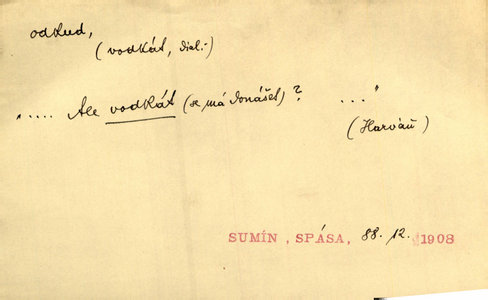 odkud,
(vodkát, dial.)
"..... Ale vodkát (se má donášet)? ..."
(Harváň)
SUMÍN, SPÁSA, 88. 12. 1908